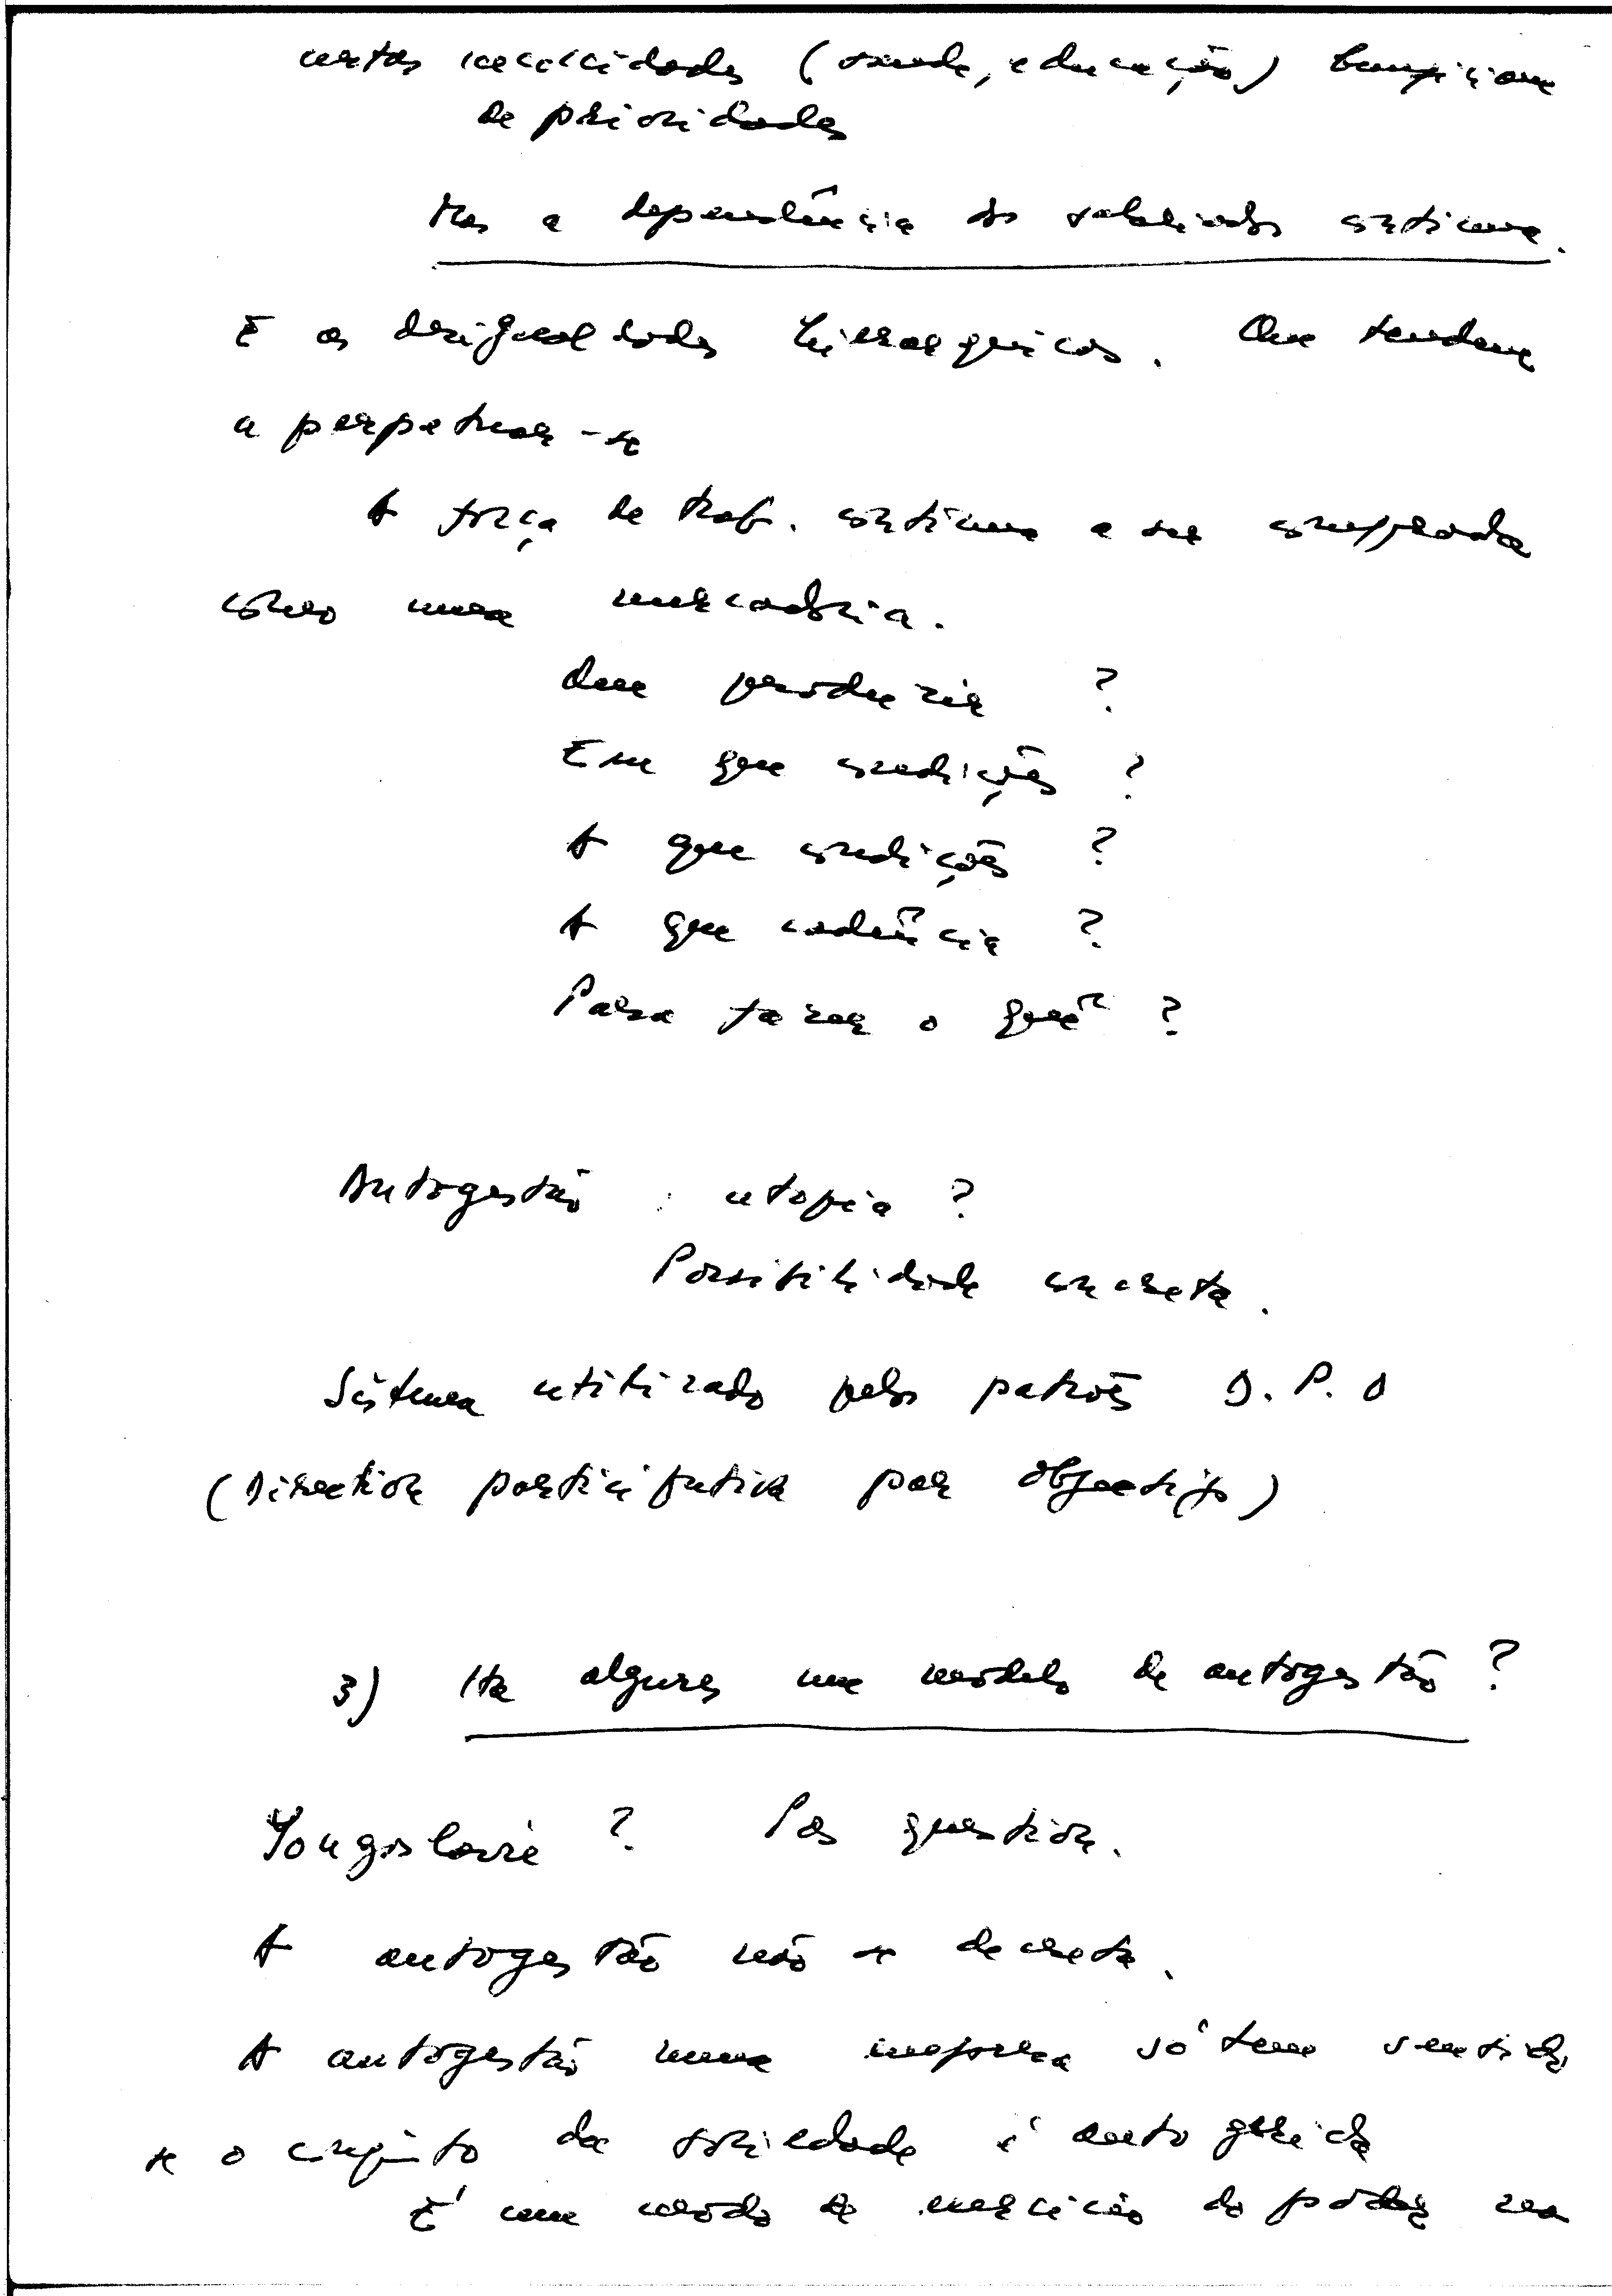 certas necessidades (saúde, educação) beneficiam
de prioridades
Mas a dependência do salariado continua.
E as desigualdades hierarquicas. Que tendem
a perpetuar-se
A força de trab. continua a ser comprada
como uma mercadoria.
Que produzir ?
Em que condições ?
A que condições ?
A que cadência ?
Para fazer o quê ?
Autogestão : utopia ?
Possibilidade concreta.
Sistema utilizado pelos patrões D. P. O
(Direction participative par objectifs)
3) Ha algures um modelo de autogestão ?
Yougoslavie ? Pas question.
A autogestão não se decreta.
A autogestão numa empresa só tem sentido
se o conjunto da sociedade é auto gerida
É um modo de exercicio do poder na